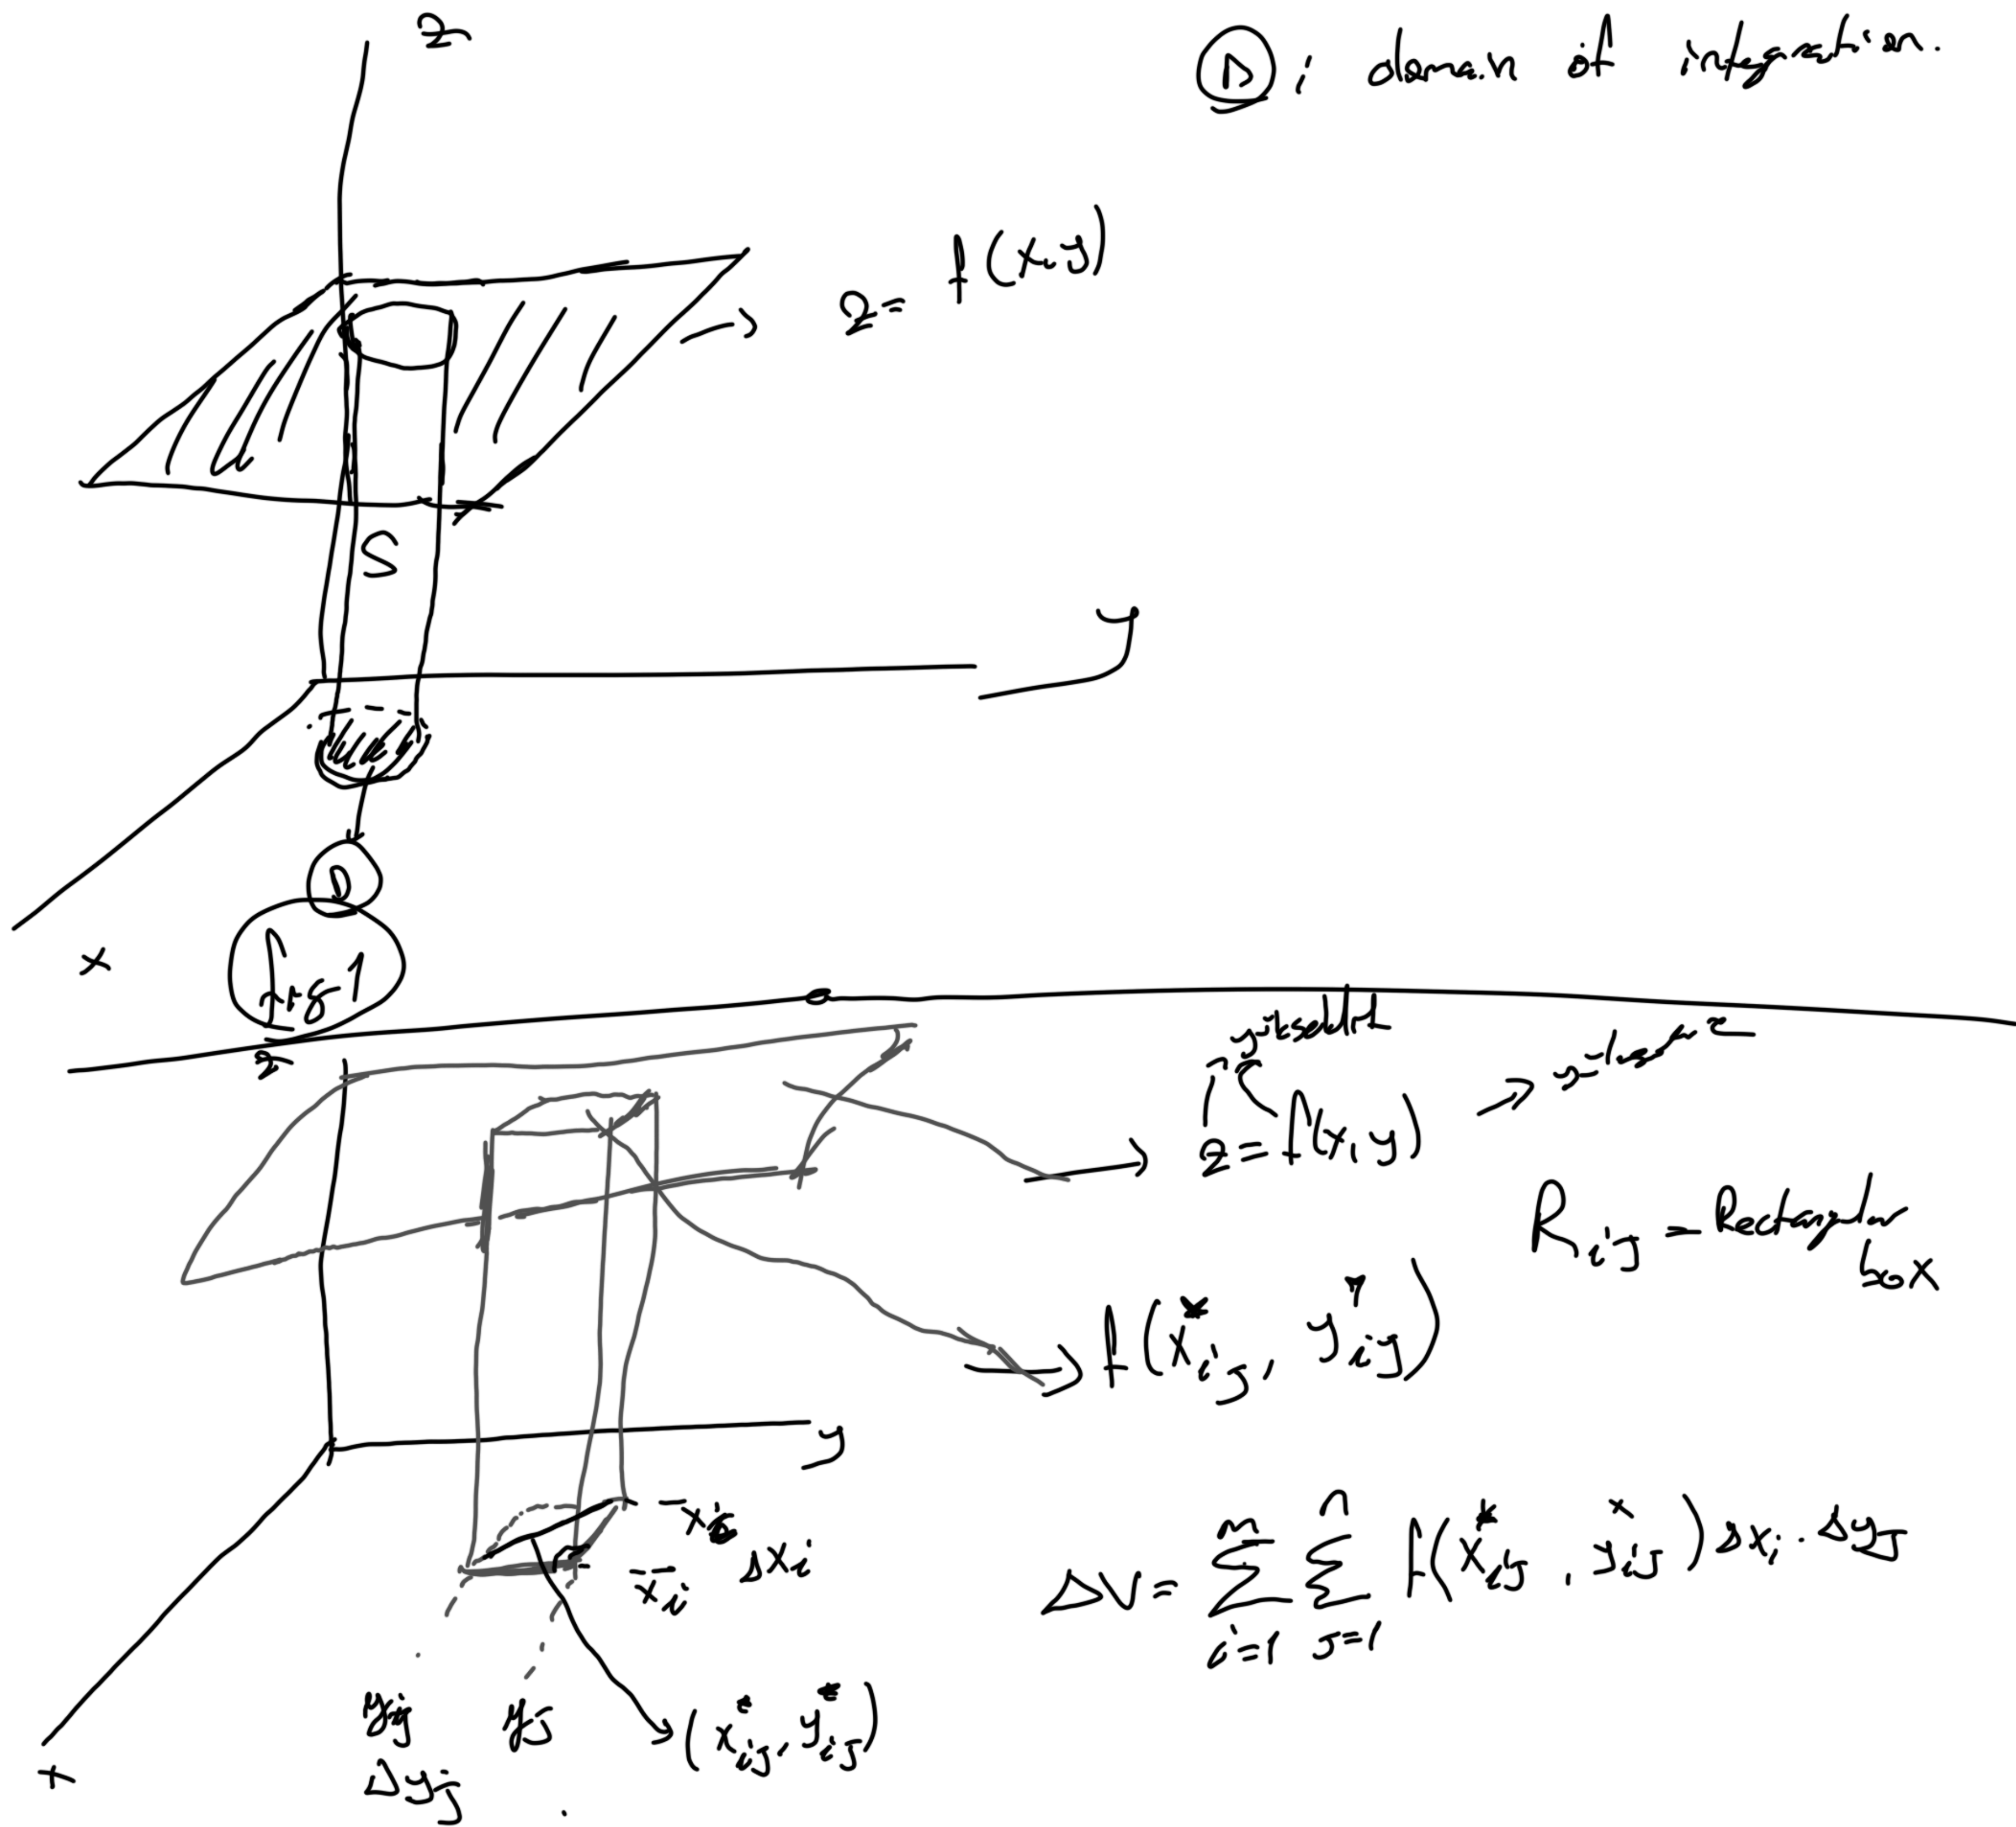 z
D : domain of integration.
z = f(x,y)
S
y
D
x
Fig 1
z
yükseklik
z = f(x,y)
R_ij = Rectangular
box
f(x*_ij, y*_ij)
y
x_i Δx_i
ΔV = Σ_{i=1}^{m} Σ_{j=1}^{n} f(x*_ij, y*_ij) Δx_i . Δy_j
y_j
(x*_ij, y*_ij)
x
Δy_j